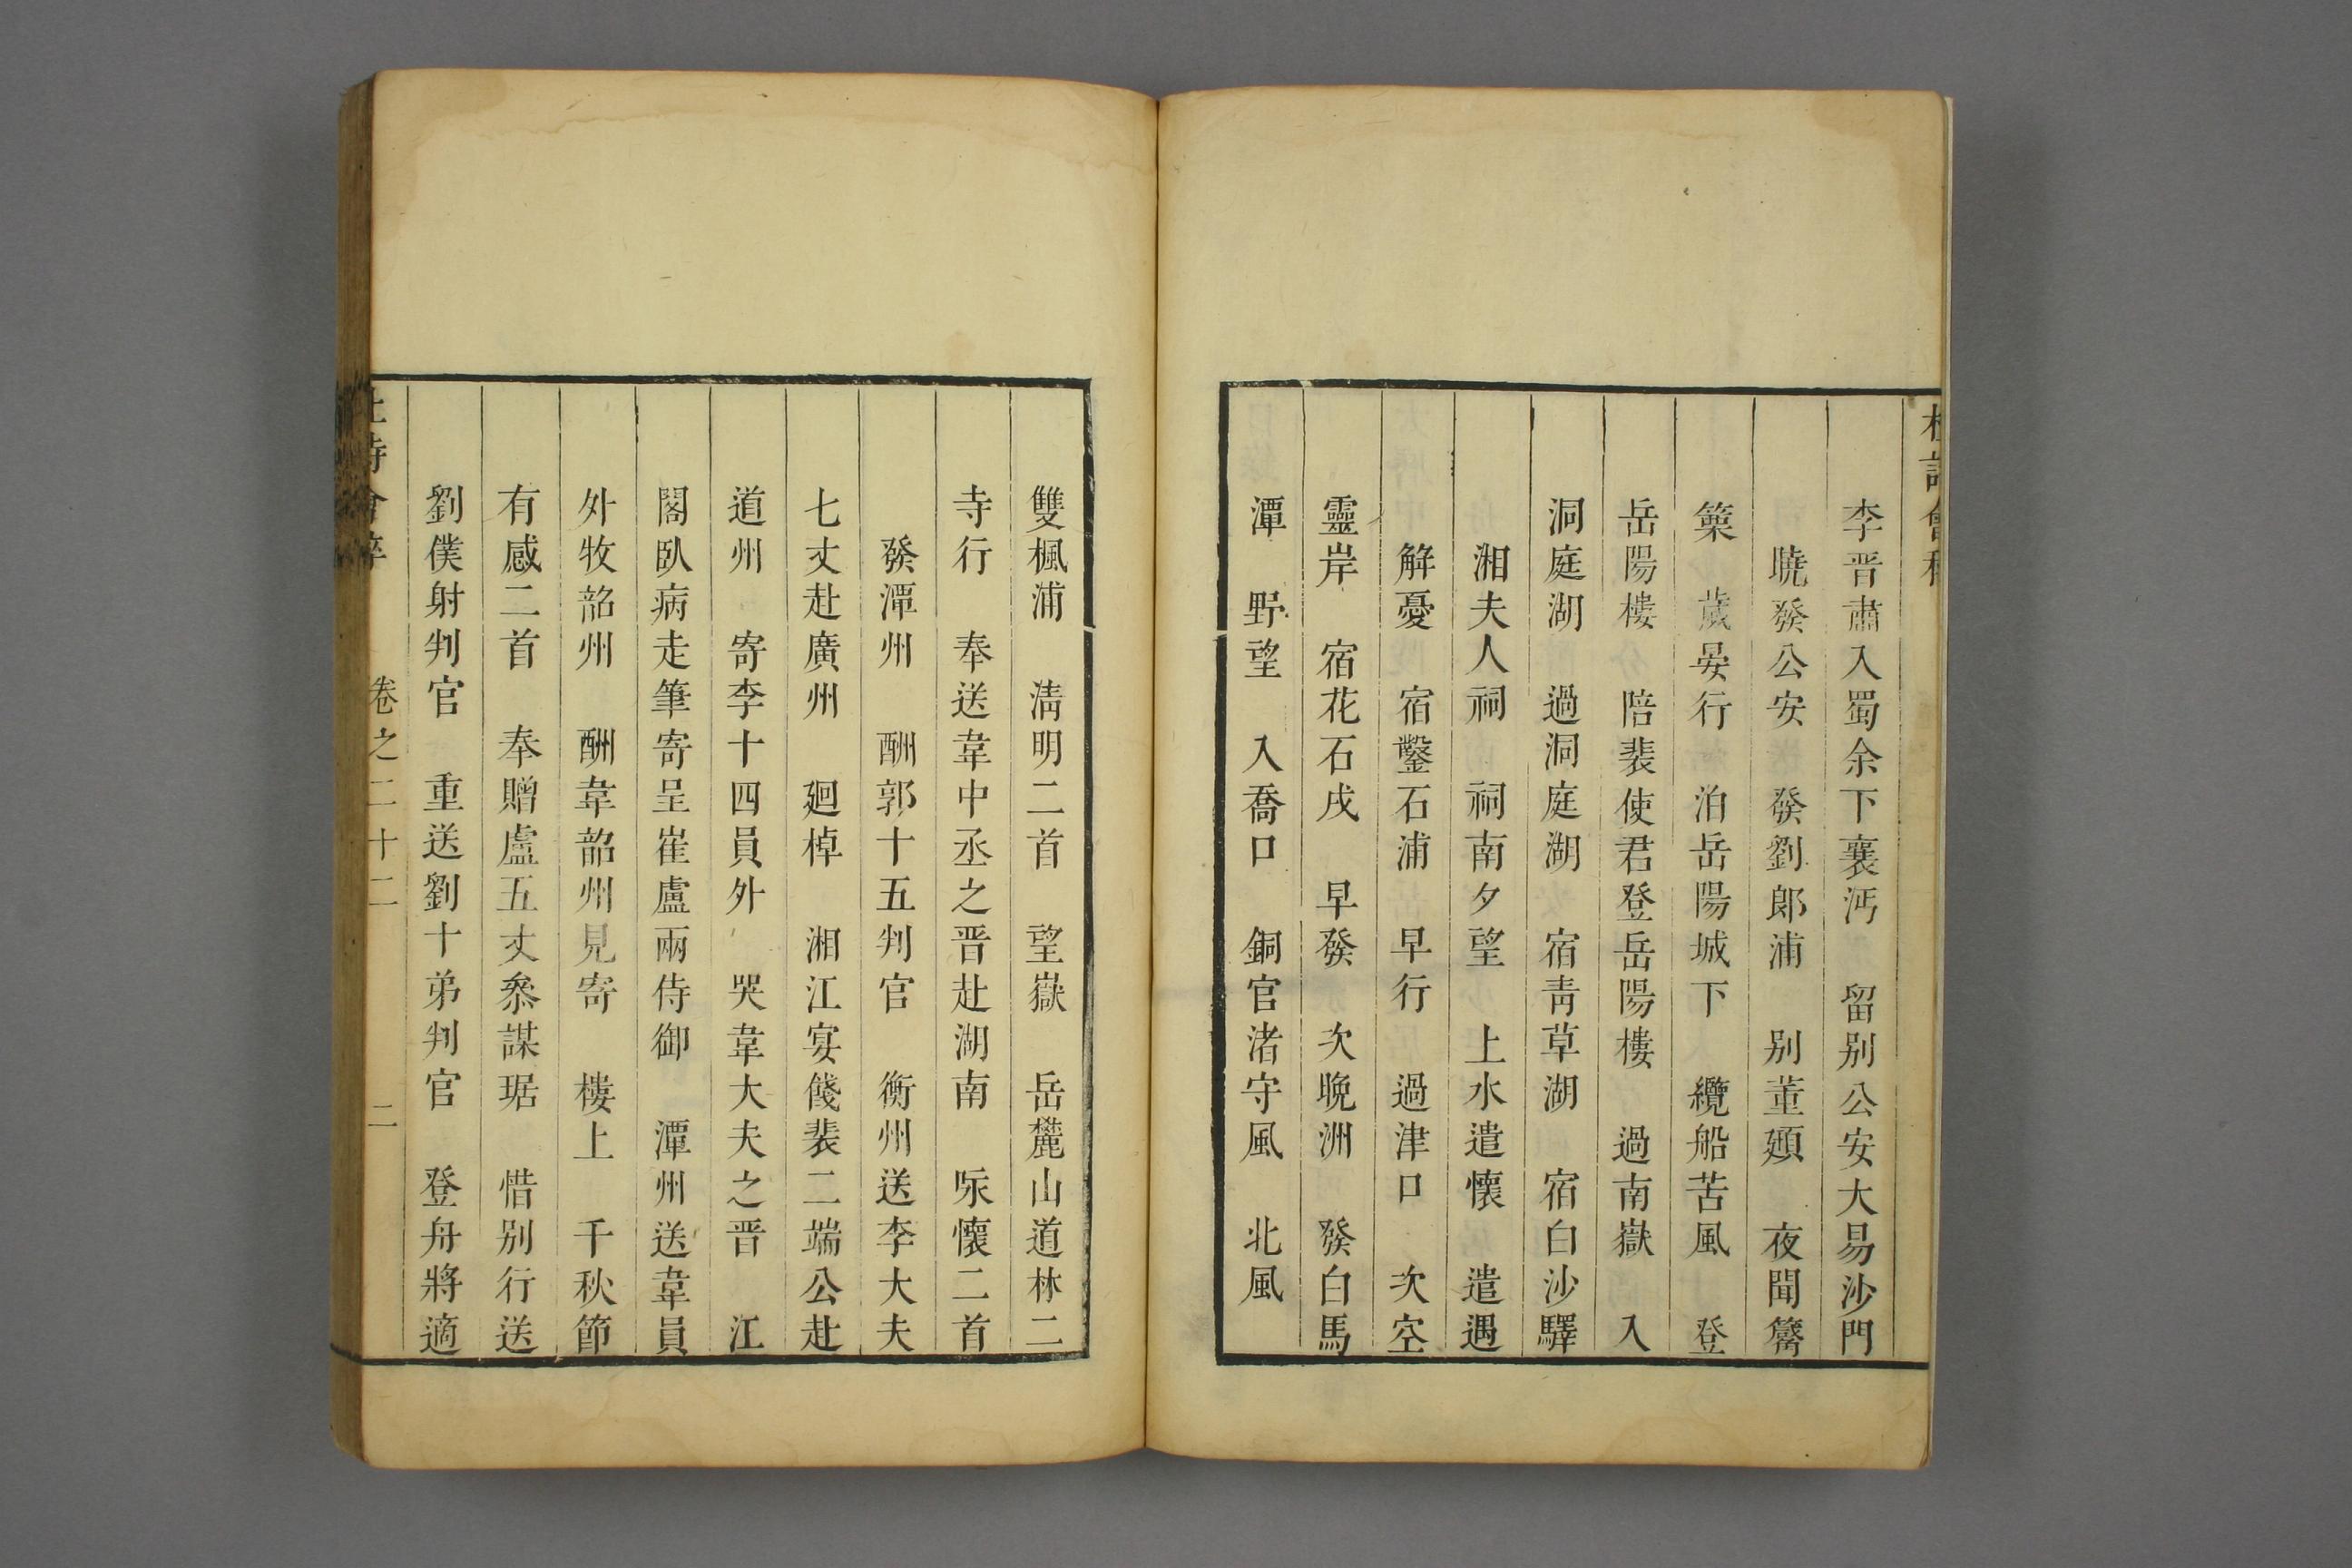 杜詩會稡
李晋肅入蜀余下襄沔　留别公安大易沙門
曉發公安　發劉郎浦　别董頲　夜聞觱
篥　歲晏行　泊岳陽城下　纜船苦風　登
岳陽樓　陪裴使君登岳陽樓　過南嶽　入
洞庭湖　過洞庭湖　宿靑草湖　宿白沙驛
湘夫人祠　祠南夕望　上水遣懷　遣遇
解憂　宿鑿石浦　早行　過津口　次空
靈岸　宿花石戍　早發　次晚洲　發白馬
潭　野望　入喬口　銅官渚守風　北風
雙楓浦　淸明二首　望嶽　岳麓山道林二
寺行　奉送韋中丞之晋赴湖南　咏懷二首
發潭州　酬郭十五判官　衡州送李大夫
七丈赴廣州　廻棹　湘江宴餞裴二端公赴
道州　寄李十四員外　哭韋大夫之晋　江
閣臥病走筆寄呈崔盧兩侍御　潭州送韋員
外牧韶州　酬韋韶州見寄　樓上　千秋節
有感二首　奉贈盧五丈叅謀琚　惜别行送
劉僕射判官　重送劉十弟判官　登舟將適
杜詩會稡　卷之二十二　二